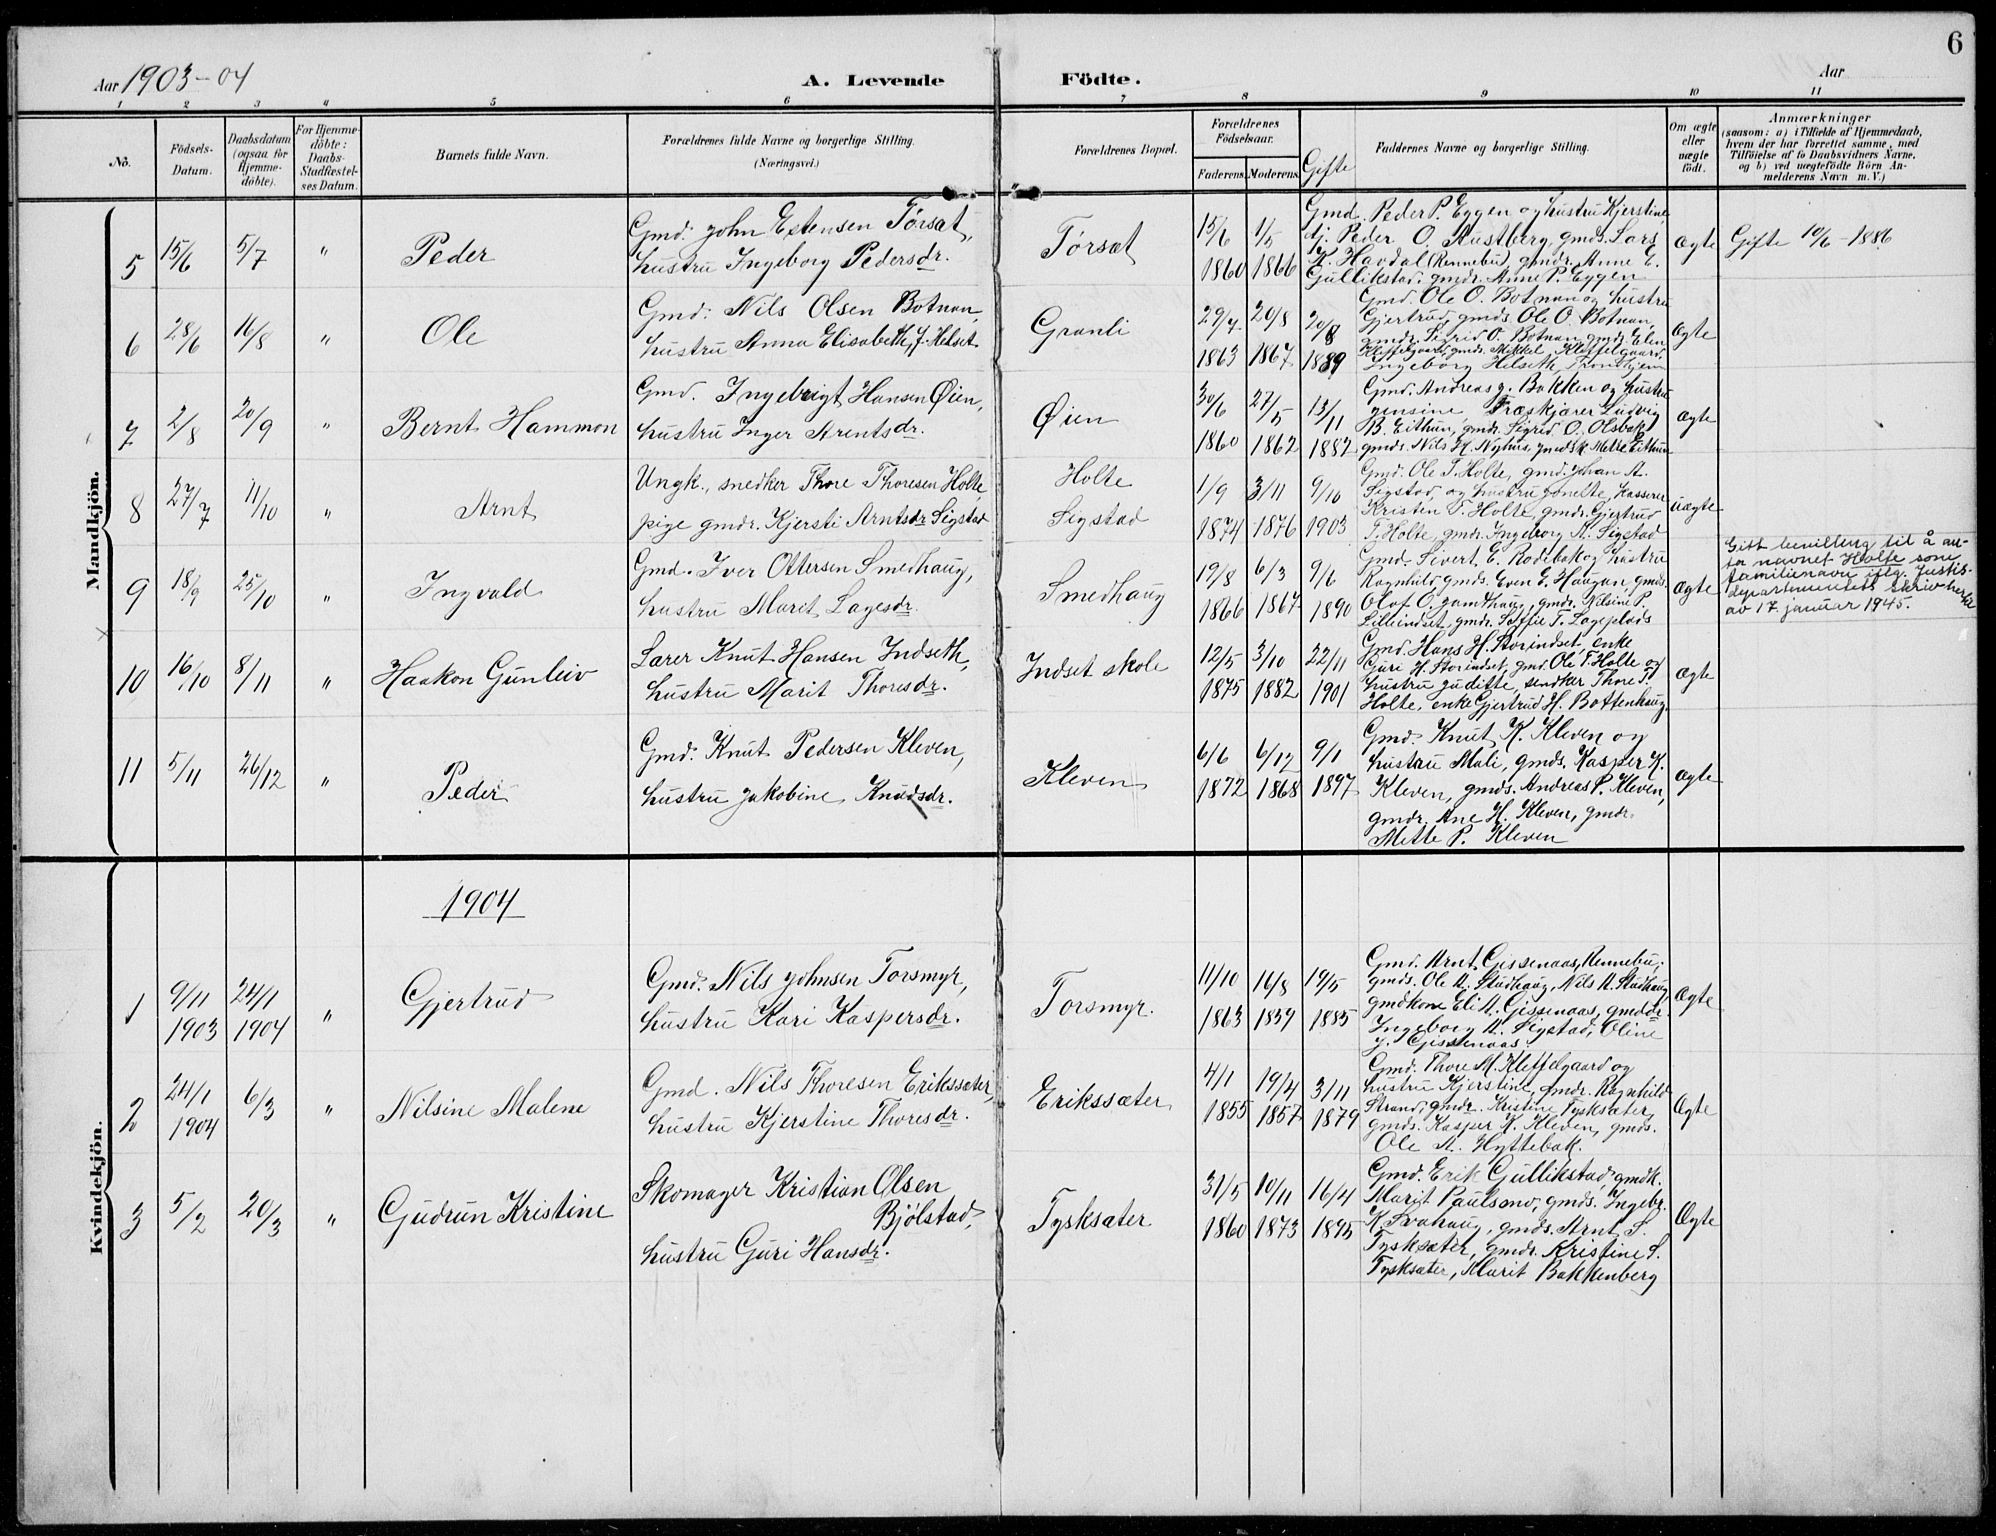 6
Aar 1903-04
A. Levende Födte.
Aar
1 2 3 4 5 6 7 8 9 10 11
No.
Födsels-
Datum.
Daabsdatum
(ogsaa for
Hjemme-
döbte).
For Hjemme-
döbte:
Daabs-
Stadfæstel-
ses Datum.
Barnets fulde Navn.
Forældrenes fulde Navne og borgerlige Stilling.
(Næringsvei.)
Forældrenes Bopæl.
Forældrenes
Födselsaar.
Faderens. Moderens.
Gifte
Faddernes Navne og borgerlige Stilling.
Om ægte
eller
uægte
födt.
Anmærkninger
(saasom: a) i Tilfælde af Hjemmedaab,
hvem der har forrettet samme, med
Tilföielse af to Daabsvidners Navne.
og b) ved uægtefödte Börn An-
melderens Navn m. V.)
Mandkjön.
5 15/6 5/7 " Peder
Gmd. John Estensen Tørsæt,
hustru Ingeborg Pedersdr.
Tørsæt
15/6 1/5
1860 1866
Gmd. Peder P. Eggen og hustru Kjerstine
Peder O. Austberg, gmds. Lars
Havdal (Rennebu), gmdr. Anne E.
Gullikstad, gmdr. Anne P. Eggen
Ægte
Gifte 10/6-1886
6 28/6 16/8 " Ole
Gmd: Nils Olsen Botnan,
hustru Anna Elisabeth J. Helset
Granli
29/7 20/8 20/8
1863 1867 1889
Gmd. Ole O. Botnan og hustru
Gjertrud, gmds. Ole O. Botnan,
gmdr. Sigrid O. Botnan gmdr. Elen
Kleffelgaard, gmds. Mikkel Kleffelgaard,
Ingeborg Helseth, Trondhjem
Ægte
7 2/8 20/9 " Bernt Hammon
Gmd. Ingebrigt Hansen Øien,
hustru Inger Arentsdr.
Øien
30/6 27/5 13/11
1860 1862 1882
Gmd. Andreas J. Bakken og hustru
Jensine Træskjærer Ludvig
B. Eithun, gmdr. Sigrid O. Olsbak,
gmds. Nils H. Nyhus, gmdsk. Mette Eithun
Ægte
8 27/7 11/10 " Arnt
Ungk., snedker Thore Thoresen Holte
pige gmdr. Kjersti Arntsdr Sigstad
Holte
Sigstad
1/9 3/11 9/10
1874 1876 1903
Gmd. Ole T. Holte, gmd. Johan A.
Sigstad, og hustru Jonette, kasserer
Kristen T. Holte, gmdr. Gjertrud
T. Holte, gmdr. Ingeborg A. Sigstad
uægte
9 18/9 25/10 " Ingvald
Gmd. Iver Ottersen Smedhaug,
hustru Marit Lagesdr.
Smedhaug
19/8 6/3 9/6
1866 1867 1890
Gmd. Sivert E. Rødebak og hustru
Ragnhild, gmds. Even E. Haugan, gmds.
Olaf O. Jamthaug, gmdr. Nilsine P.
Lilleindset, gmdr. Soffie T. Lageplads
Ægte
Gitt bevilling til å an-
ta navnet Holte som
familienavn iflg. Justis-
departementets skriv herfra
av 17. januar 1945.
10 16/10 8/11 " Haakon Gunleiv
Lærer Knut Hansen Indseth,
hustru Marit Thoresdr.
Indset skole
12/5 3/10 22/11
1875 1882 1901
Gmd. Hans H. Storindset, enke
Guri H. Storindset, gmd. Ole T. Holte og
hustru Juditte, snedker Thore T.
Holte, enke Gjertrud H. Bottenhaug.
Ægte
11 5/11 26/12 " Peder
Gmd. Knut Pedersen Kleven,
hustru Jakobine Knudsdr.
Kleven
6/6 6/12 9/1
1872 1868 1897
Gmd. Knut K. Kleven og
hustru Mali, gmds. Kasper K.
Kleven, gmds. Andreas P. Kleven,
gmdr. Ane H. Kleven, gmdr.
Mette P. Kleven
Ægte
Kvindekjön.
1904
1 9/11 1903 24/1 1904 " Gjertrud
Gmd. Nils Johnsen Torsmyr,
hustru Kari Kaspersdr.
Torsmyr.
11/10 16/8 19/5
1863 1859 1885
Gmd. Arnt Gissenaas, Rennebu,
gmds. Ole N. Studhaug, Nils N. Studhaug
gmdkone Eli A. Gissenaas, gmddr.
Ingeborg A. Sigstad, Oline
J. Gissenaas.
Ægte
2 24/1 1904 6/3 " Nilsine Malene
Gmd. Nils Thoresen Erikssæter,
hustru Kjerstine Thoresdr.
Erikssæter
4/1 19/4 3/11
1855 1857 1879
Gmd. Thore M. Kleffelgaard og
hustru Kjerstine, gmdr. Ragnhild
Strand, gmdr. Kristine Tysksæter,
gmds. Kasper K. Kleven, gmds.
Ole A. Hyttebak.
Ægte
3 5/2 20/3 " Gudrun Kristine
Skomager Kristian Olsen
Bjølstad,
hustru Guri Hansdr.
Tysksæter
31/5 10/11 16/4
1860 1873 1895
Gmd. Erik Gullikstad gmdk.
Marit Paulsmo, gmds. Ingebr.
K. Svahaug, gmds. Arnt S.
Tysksæter, gmdr. Kristine S.
Tysksæter, Marit Bakkenberg
Ægte